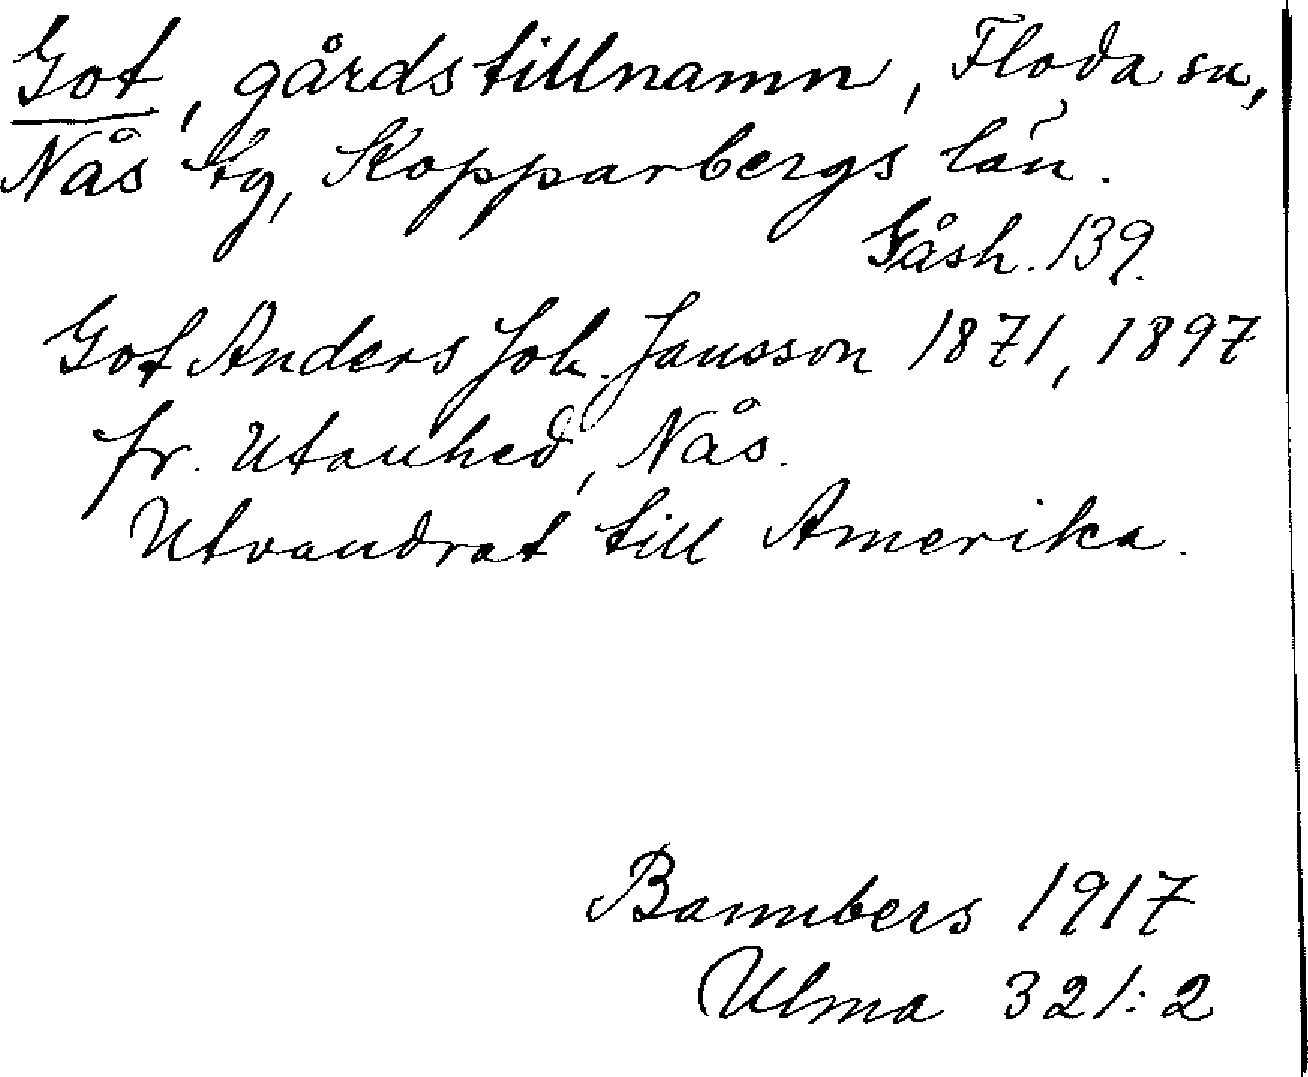 Got, gårdstillnamn, Floda sn,
Nås tg, Kopparbergs län.
Gåsh. 139.
Got Anders Joh. Jansson 1871, 1897
fr. Utanhed, Nås.
Utvandrat till Amerika.
Bannbers 1917
Ulma 321:2